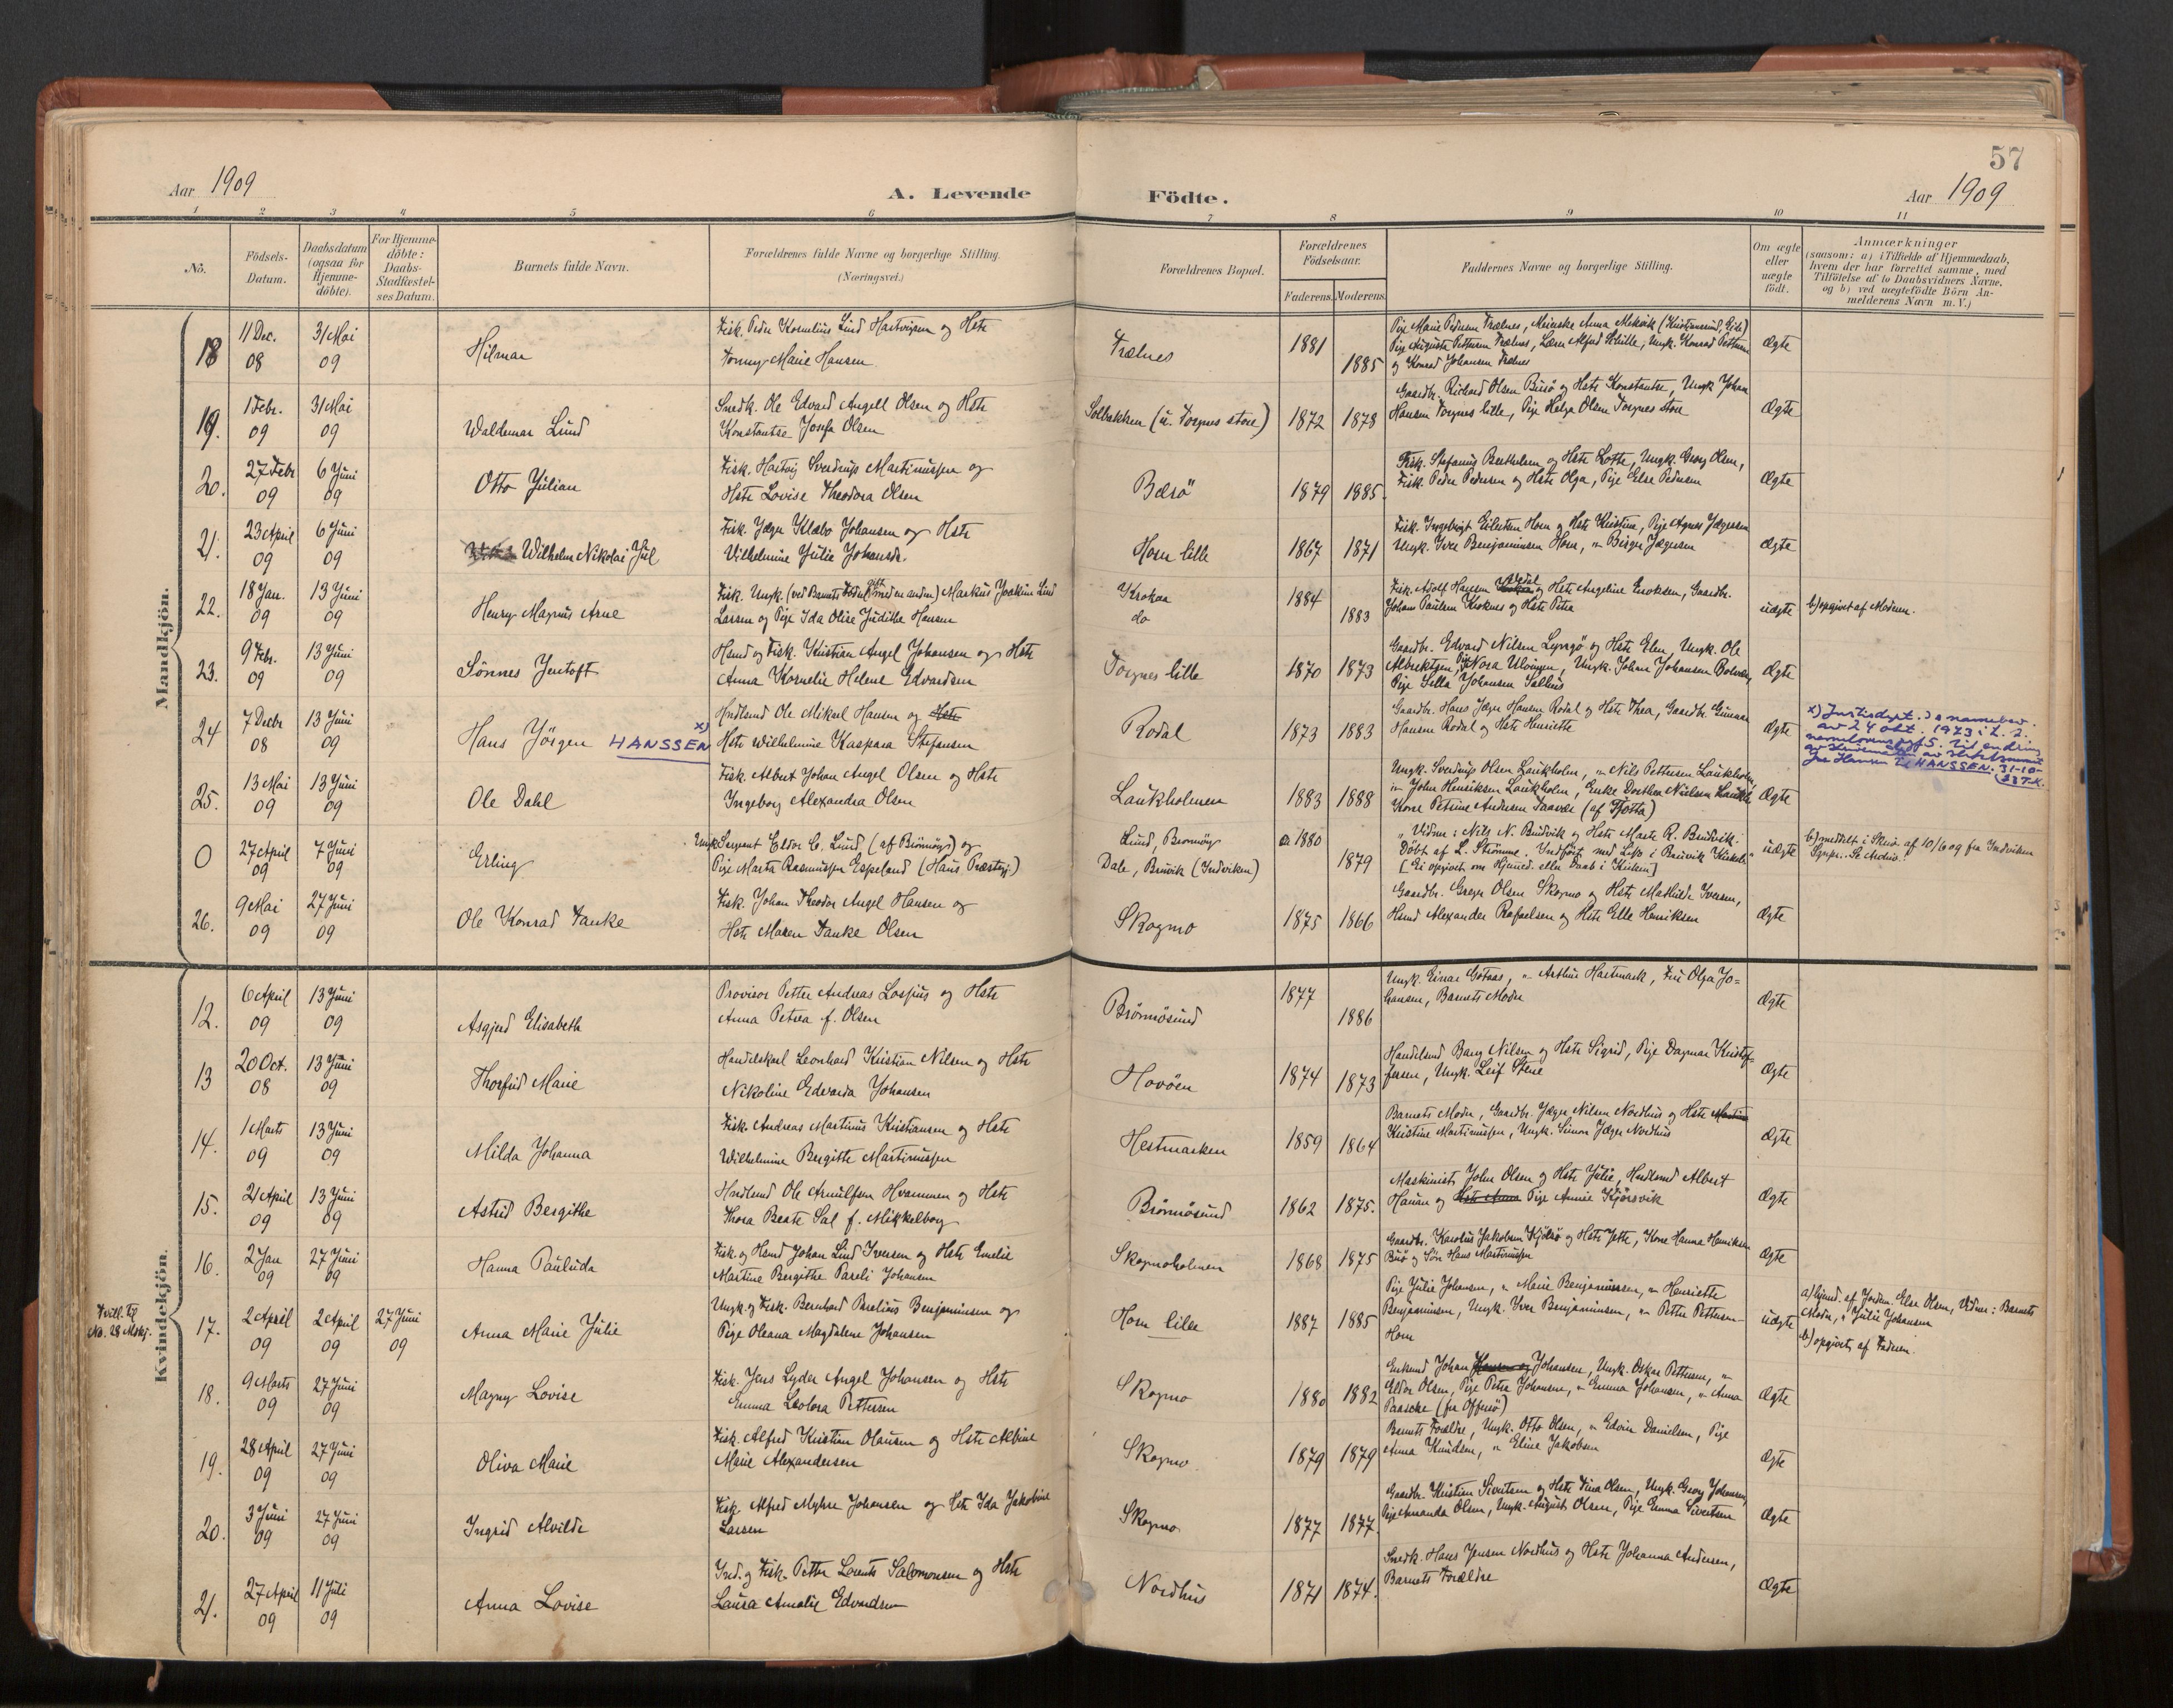 57
Aar 1909
A. Levende
Födte.
Aar 1909
1 2 3 4 5 6 7 8 9 10 11
No.
Födsels-Datum.
Daabsdatum (ogsaa for Hjemme-döbte).
For Hjemme-döbte: Daabs-Stadfæstel-ses Datum.
Barnets fulde Navn.
Forældrenes fulde Navne og borgerlige Stilling. (Næringsvei.)
Forældrenes Bopæl.
Forældrenes Födselsaar.
Faderens. Moderens.
Faddernes Navne og borgerlige Stilling.
Om ægte eller uægte födt.
Anmærkninger
(saasom: a) i Tilfælde af Hjemmedaab,
hvem der har forrettet samme, med
Tilföielse af to Daabsvidners Navne,
og b) ved uægtefödte Börn An-
melderens Navn m. V.)
Mandkjön.
18 11 Dec. 08 31 Mai 09 Hilmar
Fisk. Peder Kornelius Lind Hartvigsen og Hstr
Fonny Marie Hansen
Trælnes 1881 1885
Pige Marie Pedersen Trælnes, Meierske Anna Mekvik (Kristiansund, Eide)
Pige Auguste Pettersen Trælnes, Lærer Alfred Schille, Ungk. Konrad Pettersen
og Konrad Johansen Trælnes
Ægte
19. 1 Febr. 09 31 Mai 09 Waldemar Lund
Snedk. Ole Edvard Angell Olsen og Hstr
Konstantse Josefa Olsen
Solbakken (u. Torgnes store) 1872 1878
Gaardbr. Richard Olsen Busø og Hstr Konstantse, Ungk Johan
Hansen Torgnes lille, Pige Helga Olsen Torgnes store
Ægte
20. 27 Febr 09 6 Juni 09 Otto Julian
Fisk. Hartvig Sverdrup Martinussen og
Hstr Lovise Theodora Olsen
Bærö 1879 1885.
Fisk. Stefanus Berthelsen og Hstr Lotte, Ungk. Georg Olsen,
Fisk. Peder Pedersen og Hstr Olga, Pige Else Pedersen
Ægte
21. 23 April 09 6 Juni 09 Wilhelm Nikolai Jul
Fisk. Jæger Klæbo Johansen og Hstr
Vilhelmine Julie Johansdr.
Horn lille 1867 1871
Fisk. Ingebrigt Eilertsen Horn og Hstr Kristine, Pige Agnes Jægersen
Ungk. Iver Benjaminsen Horn, " Birger Jægersen
Ægte
22. 18 Jan. 09 13 Juni 09 Henry Magnus Arne
Fisk. Ungk. (ved Barnets Fødsel gift med en anden) Markus Joakim Lind
Larsen og Pige Ida Olise Judithe Hansen
Krokaa
do
1884 1883
Fisk. Adolf Hansen og Hstr Angeline Enoksen, Gaardbr.
Johan Paulsen Kroknes og Hstr Petra
uægte b) opgivet af Moderen.
23. 9 Febr. 09 13 Juni 09 Sönnes Jentoft
Hsmd og Fisk. Kristian Angel Johansen og Hstr
Anna Kornelie Helene Edvardsen
Torgnes lille 1870 1873
Gaardbr. Edvard Nilsen Lyngö og Hstr Elen, Ungk. Ole
Albrektsen, Pige Nora Ulvingen, Ungk. Johan Johansen Bolvær,
Pige Sella Johansen Salhus
Ægte
24 7 Decbr 08 13 Juni 09 Hans Jörgen HANSSEN x)
Hndlsmd Ole Mikael Hansen og Hstr
Hstr Wilhelmine Kaspara Stefansen
Rodal 1873 1883
Gaardbr. Hans Jæger Hansen Rodal og Hstr Thea, Gaardbr. Gunnar
Hansen Rodal og Hstr Henriette
Ægte
x) Justisdept.s navnebev.
av 24 okt. 1973 i h. t.
navnelovens §5. til endring
av slektsnavnet
fra Hansen til HANSSEN. 31-10-
73 T.K.
25. 13 Mai 09 13 Juni 09 Ole Dahl
Fisk. Albert Johan Angel Olsen og Hstr
Ingeborg Alexandra Olsen
Laukholmen 1883 1888
Ungk. Sverdrup Olsen Laukholm, " Nils Pettersen Laukholm,
" John Henriksen Laukholm, Enke Dorthea Nielsen Laukh.
Kone Petrine Andersen Taavær (af Tjøtta)
Ægte
0 27 April 09 7 Juni 09 Erling
Ungk Sergeant Eldor C. Lund (af Brönnöy) og
Pige Marta Rasmussen Espeland (Haus Præstegj.)
Lund, Brönnöy
Dale, Bruvik (Indviken)
1880 1879
" Vidner: Nils N. Bruvik og Hstr Marte R. Bruvik.
Döbt af L. Strömme. Indført med Lys i Bruvik Kirkebok"
[Ei opgivet om Hjemmed. eller Daab i Kirken]
uægte
b) meddelt i Skriv. af 10/6 09 fra Indviken
Sgnpr. Se Archiv!
26. 9 Mai 09 27 Juni 09 Ole Konrad Tanke
Fisk. Johan Theodor Angel Hansen og
Hstr Maren Tanke Olsen
Skogmo 1875 1866
Gaardbr. Greger Olsen Skogmo og Hstr Mathilde Iversen,
Hsmd Alexander Rafaelsen og Hstr Elle Henriksen
Ægte
Kvindekjön.
12. 6 April 09 13 Juni 09 Asgjerd Elisabeth
Provisor Petter Andreas Lospius og Hstr
Anna Petrea f. Olsen
Brönnösund 1877 1886
Ungk. Einar Gotaas, " Arthur Hartmark, Fru Olga Jo=
hansen, Barnets Moder
Ægte
13 20 Oct. 08 13 Juni 09 Thorfrid Marie
Handelskarl Leonhard Kristian Nilsen og Hstr
Nikoline Edevarda Johansen
Hovöen 1874 1873
Handelsmd Bang Nilsen og Hstr Sigrid, Pige Dagmar Kristof-
fersen, Ungk. Leif Stene
Ægte
14. 1 Marts 09 13 Juni 09 Milda Johanna
Fisk. Andreas Martinus Kristiansen og Hstr
Wilhelmine Bergitte Martinussen
Hestmarken 1859 1864
Barnets Moder, Gaardbr. Jæger Nilsen Nordhus og Hstr Martine
Kristine Martinussen, Ungk. Simon Jæger Nordhus
Ægte
15. 21 April 09 13 Juni 09 Astrid Bergithe
Hndlsmd Ole Arnulfsen Hvammen og Hstr
Thora Beate Sal f. Mikkelborg
Brönnösund 1862 1875.
Maskinist John Olsen og Hstr Julie, Hndlsmd Albert
Hanan og Hstr Anna Pige Annie Kjörsvik
Ægte
16. 2 Jan 09 27 Juni 09 Hanna Paulude
Fisk. og Hsmd Johan Lind Iversen og Hstr Emelie
Martine Bergithe Pareli Johansen
Skogmoholmen 1868 1875
Gaardbr. Karolius Jakobsen Kjölsö og Hstr Jette, Kone Hanna Henriksen
Buö og Søn Hans Martinussen
Ægte
Tvill. til
No. 28 Mskj.
17. 2 April 09 2 April 09 27 Juni 09 Anna Marie Julie
Ungk. og Fisk. Bernhard Parelius Benjaminsen og
Pige Oleana Magdalene Johansen
Horn lille 1887 1885
Pige Julie Johansen, " Marie Benjaminsen, " Henriette
Benjaminsen, Ungk. Iver Benjaminsen, " Petter Pettersen
Horn
uægte
a) hjemd. af Jordm. Else Olsen, Vidner: Barnets
Moder, " Julie Johansen
b) opgivet af Faderen.
18. 9 Marts 09 27 Juni 09 Magny Lovise
Fisk. Jens Lyder Angel Johansen og Hstr
Emma Leolora Pettersen
Skogmo 1880 1882
Enkemd Johan Hansen og Johansen, Ungk. Oskar Pettersen, "
Eldor Olsen, Pige Petra Johansen, " Emma Johansen, " Anna
Paascke (fra Offersö)
Ægte
19. 28 April 09 27 Juni 09 Oliva Marie
Fisk. Alfred Kristian Olausen og Hstr Albine
Marie Alexandersen
Skogmo 1879 1879
Barnets Forældre, Ungk. Otto Olsen, " Edvin Danielsen, Pige
Anna Knudsen, " Eline Jakobsen
Ægte
20. 3 Juni 09 27 Juni 09 Ingrid Alvilde
Fisk. Alfred Myhre Johansen og Hstr Ida Jakobine
Larsen
Skogmo 1877 1877.
Gaardbr. Kristian Sivertsen og Hstr Tina Olsen, Ungk. Georg Johansen,
Pige Amanda Olsen, Ungk. August Olsen, Pige Emma Sivertsen
Ægte
21. 27 April 09 11 Juli 09 Anna Lovise
Ind. og Fisk. Petter Lorents Salomonsen og Hstr
Laura Amalie Edvardsen
Nordhus 1871 1874.
Snedk. Hans Jensen Nordhus og Hstr Johanna Andersen,
Barnets Forældre
Ægte